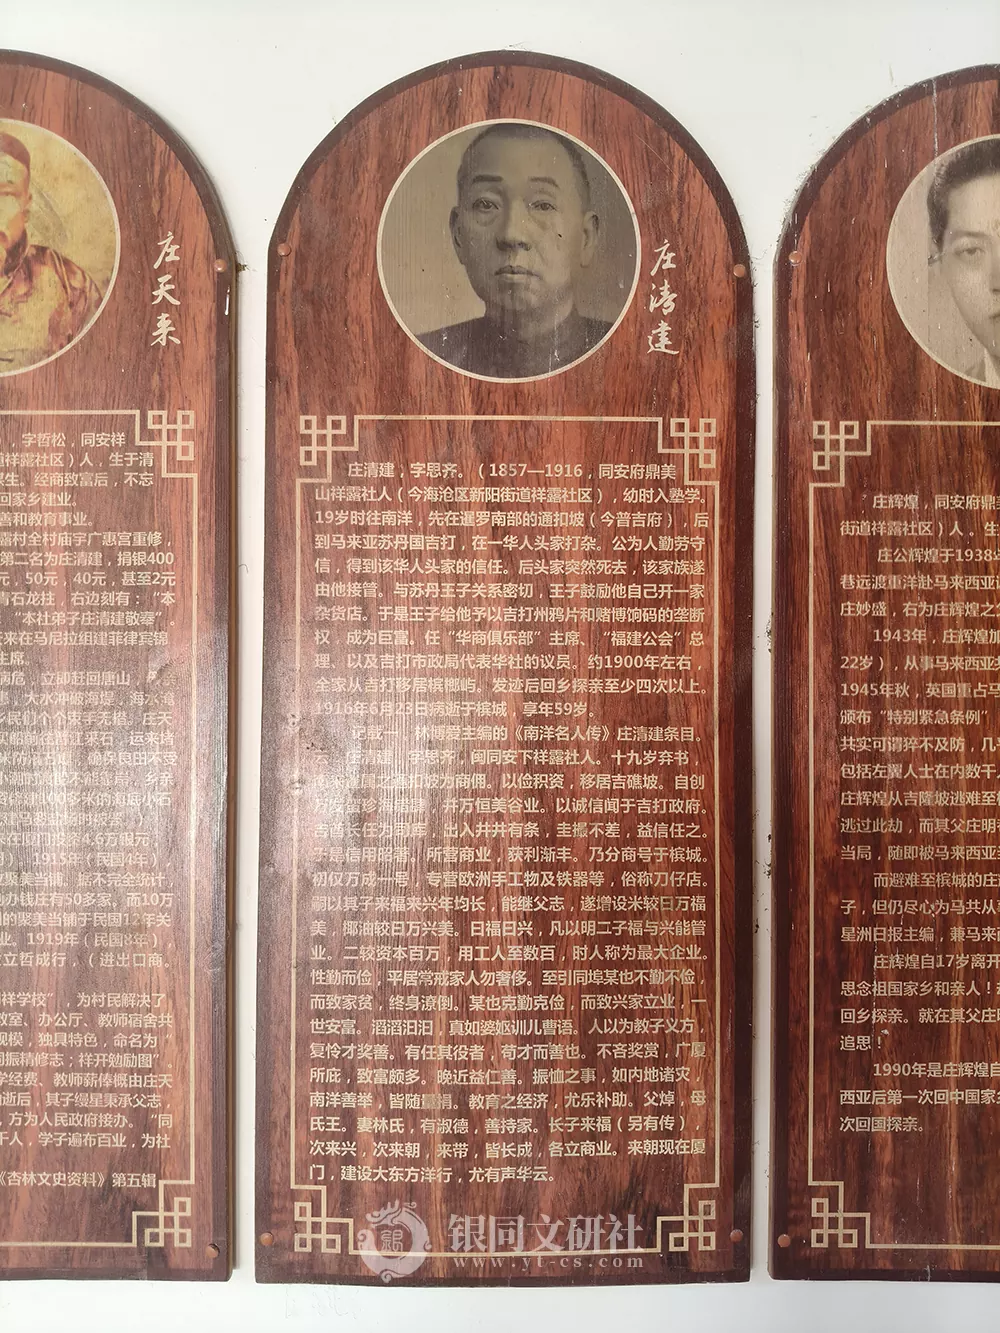 庄天来
，字哲松，同安祥
道祥露社区）人，生于清
经商致富后，不忘
回家乡建业。
善和教育事业。
露村全村庙宇广惠宫重修，
第二名为庄清建，捐银400
元，50元，40元，甚至2元
青石龙拄，右边刻有：“本
“本社弟子庄清建敬奉”。
来在马尼拉组建菲律宾锦
主席。
病危，立即赶回唐山，
大水冲破海堤，海水淹
乡民们个个束手无措。庄天
4.6万银元，
1915年（民国4年）
聚美当铺。据不完全统计，
办钱庄有50多家。而10万
的聚美当铺于民国12年关
业。1919年（民国8年），
立哲成行，（进出口商。
祥学校”，为村民解决了
教室、办公厅、教师宿舍共
规模，独具特色，命名为“
同振精修志；祥开勉励图”。
学经费、教师薪俸概由庄天
逝后，其子缦星秉承父志，
，方为人民政府接办。“同
千人，学子遍布百业，为社
《杏林文史资料》第五辑
庄清建
庄清建，字思齐。（1857—1916，同安府鼎美
山祥露社人（今海沧区新阳街道祥露社区），幼时入塾学。
19岁时往南洋，先在暹罗南部的通扣坡（今普吉府），后
到马来亚苏丹国吉打，在一华人头家打杂。公为人勤劳守
信，得到该华人头家的信任。后头家突然死去，该家族遂
由他接管。与苏丹王子关系密切，王子鼓励他自己开一家
杂货店。于是王子给他予以吉打州鸦片和赌博饷码的垄断
权，成为巨富。任“华商俱乐部”主席、“福建公会”总
理、以及吉打市政局代表华社的议员。约1900年左右，
全家从吉打移居槟榔屿。发迹后回乡探亲至少四次以上。
1916年6月23日病逝于槟城，享年59岁。
记载一，林博爱主编的《南洋名人传》庄清建条目。
庄清建，字思齐，闽同安下祥露社人。十九岁弃书，
通扣坡为商佣。以俭积资，移居吉礁坡。自创
并万恒美谷业。以诚信闻于吉打政府。
吉酋长任为司库，出入井井有条，圭撮不差，益信任之。
于是信用昭著。所营商业，获利渐丰。乃分商号于槟城。
初仅万成一号，专营欧洲手工物及铁器等，俗称刀仔店。
嗣以其子来福来兴年均长，能继父志，遂增设米较日万福
美，椰油较日万兴美。日福日兴，凡以明二子福与兴能管
业。二较资本百万，用工人至数百，时人称为最大企业。
性勤而俭，平居常戒家人勿奢侈。至引同埠某也不勤不俭，
而致家贫，终身潦倒。某也克勤克俭，而致兴家立业，一
世安富。滔滔汩汩，真如婆妪训儿曹语。人以为教子义方，
复怜才奖善。有任其役者，苟才而善也。不吝奖赏，广厦
所庇，致富颇多。晚近益仁善。振恤之事，如内地诸灾，
南洋善举，皆随量捐。教育之经济，尤乐补助。父焯，母
氏王。妻林氏，有淑德，善持家。长子来福（另有传），
次来兴，次来朝，来带，皆长成，各立商业。来朝现在厦
门，建设大东方洋行，尤有声华云。
庄辉煌，同安府鼎美
街道祥露社区）人。生
庄公辉煌于1938年
巷远渡重洋赴马来西亚
庄妙盛，右为庄辉煌之
1943年，庄辉煌加
22岁），从事马来西亚共
1945年秋，英国重占马
颁布“特别紧急条例”，
共实可谓猝不及防，几乎
包括左翼人士在内数千人
庄辉煌从吉隆坡逃难至
逃过此劫，而其父庄明
当局，随即被马来西亚
而避难至槟城的庄
子，但仍尽心为马共从
星洲日报主编，兼马来
庄辉煌自17岁离开
思念祖国家乡和亲人！
回乡探亲。就在其父庄明
追思！
1990年是庄辉煌自
西亚后第一次回中国家乡
次回国探亲。
银同文研社
www.yt-cs.com